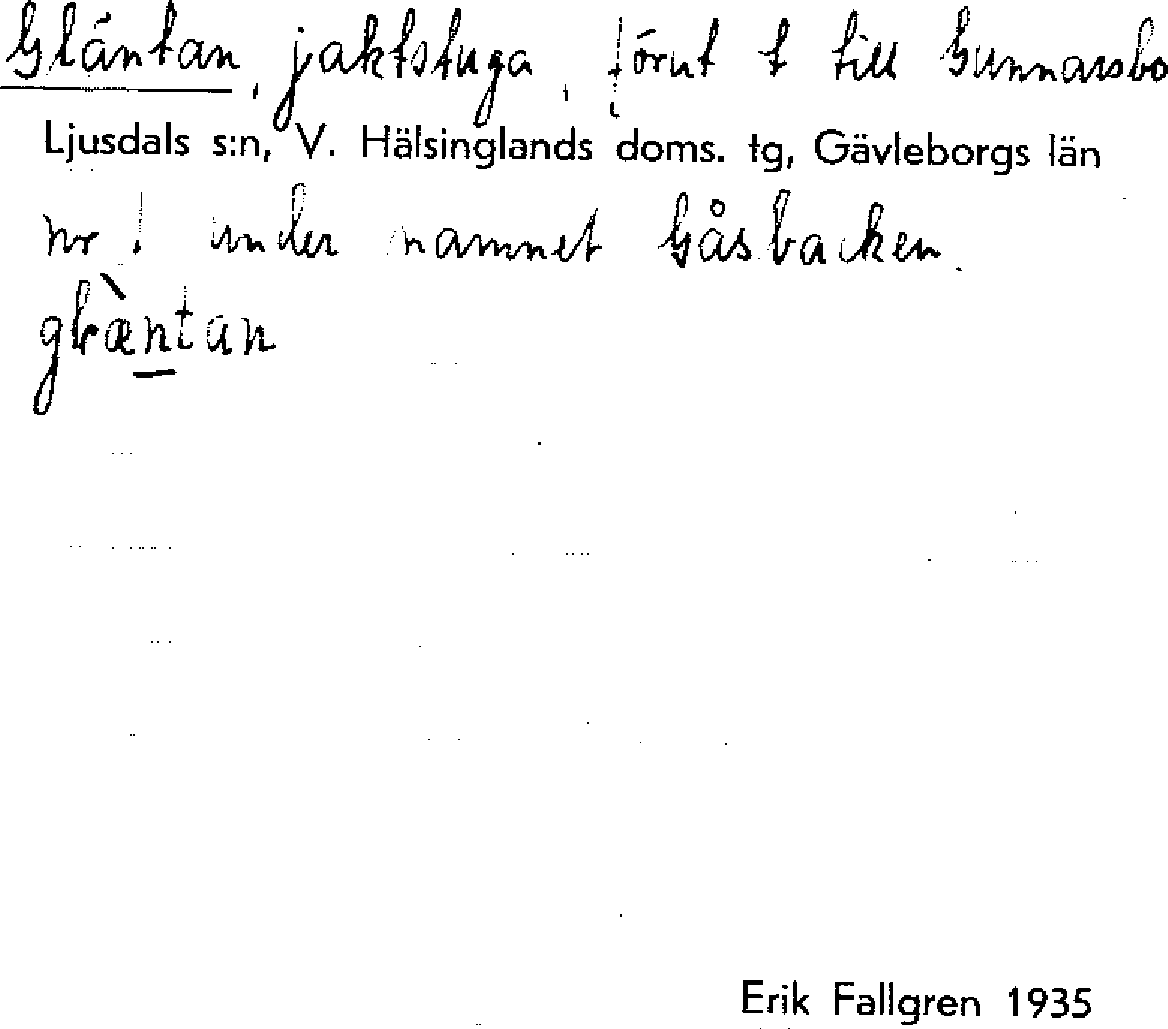 Gläntan, jaktstuga, förut t till Gunnarsbo
Ljusdals s:n, V. Hälsinglands doms. tg, Gävleborgs län
nr 1 under namnet Gåsbacken.
glæ̀ntan
Erik Fallgren 1935